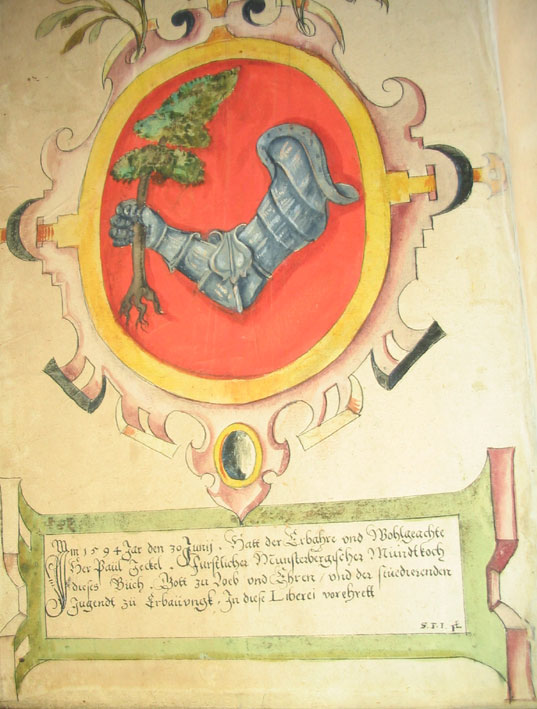 Im 1594 Jar den 30 Junij. Hatt der Erbahre vnd Wohlgeachte
Her Paul Jeckel. Furstlicher Munsterbergischer Mundtkoch
dieses Buch. Gott zu Lob vnd Ehren, vnd der studierenden
Jugendt zu Erbauungk. In diese Liberei vorehrett
S. F. I.